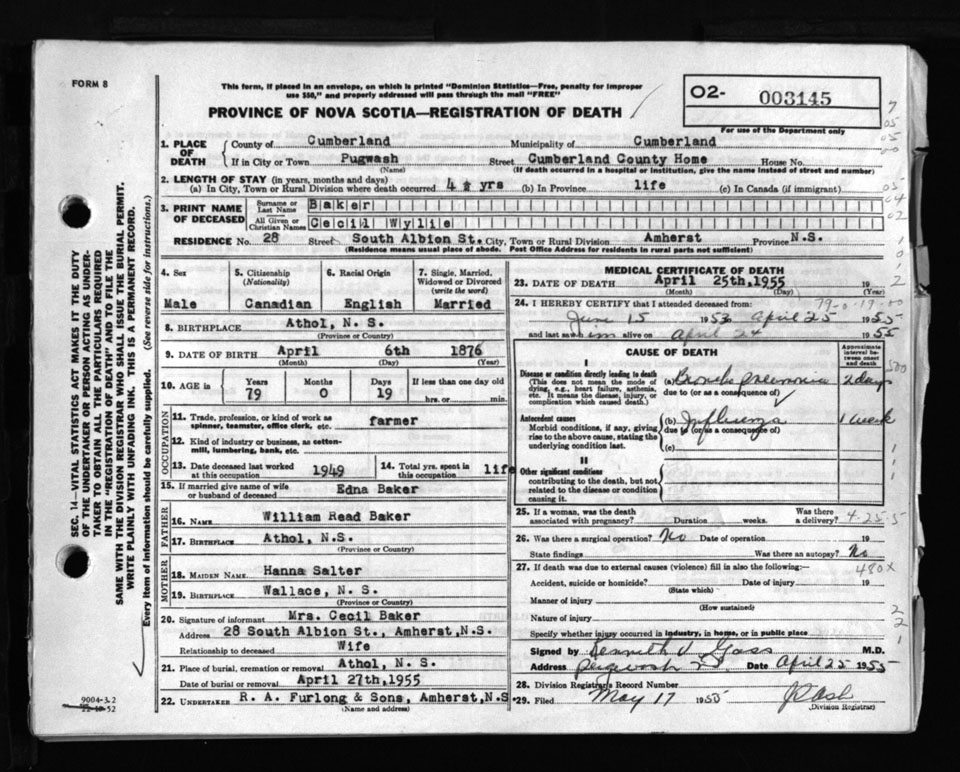 FORM 8
This form, if placed in an envelope, on which is printed "Dominion Statistics—Free, penalty for improper
use $50," and properly addressed will pass through the mail "FREE"
PROVINCE OF NOVA SCOTIA—REGISTRATION OF DEATH
O2- 003145
For use of the Department only
1. PLACE OF DEATH
County of Cumberland Municipality of Cumberland
If in City or Town Pugwash Street Cumberland County Home House No.
(Name) (If death occurred in a hospital or institution, give the name instead of street and number)
2. LENGTH OF STAY (in years, months and days)
(a) In City, Town or Rural Division where death occurred 4 yrs (b) In Province life (c) In Canada (if immigrant)
3. PRINT NAME OF DECEASED
Surname or Last Name Baker
All Given or Christian Names Cecil Wylie
RESIDENCE No. 28 Street South Albion St. City, Town or Rural Division Amherst Province N.S.
(Residence means usual place of abode. Post Office Address for residents in rural parts not sufficient)
4. Sex 5. Citizenship 6. Racial Origin 7. Single, Married,
(Nationality) Widowed or Divorced
(write the word)
Male Canadian English Married
8. BIRTHPLACE Athol, N. S.
(Province or Country)
9. DATE OF BIRTH April 6th 1876
(Month) (Day) (Year)
10. AGE in Years Months Days If less than one day old
79 0 19 hrs. or min.
OCCUPATION
11. Trade, profession, or kind of work as
spinner, teamster, office clerk, etc. farmer
12. Kind of industry or business, as cotton-
mill, lumbering, bank, etc.
13. Date deceased last worked
at this occupation 1949
14. Total yrs. spent in
this occupation life
15. If married give name of wife
or husband of deceased Edna Baker
FATHER
16. NAME William Read Baker
17. BIRTHPLACE Athol, N.S.
(Province or Country)
MOTHER
18. MAIDEN NAME Hanna Salter
19. BIRTHPLACE Wallace, N. S.
(Province or Country)
20. Signature of informant Mrs. Cecil Baker
Address 28 South Albion St., Amherst,N.S.
Relationship to deceased Wife
21. Place of burial, cremation or removal Athol, N. S.
Date of burial or removal April 27th,1955
22. UNDERTAKER R. A. Furlong & Sons, Amherst,N.S
(Name and address)
MEDICAL CERTIFICATE OF DEATH
23. DATE OF DEATH April 25th,1955 19
(Month) (Day) (Year)
24. I HEREBY CERTIFY that I attended deceased from:
June 15 1953 April 25 1955
and last saw him alive on April 24 1955
CAUSE OF DEATH
Approximate interval between onset and death
I
Disease or condition directly leading to death
(This does not mean the mode of
dying, e.g., heart failure, asthenia,
etc. It means the disease, injury, or
complication which caused death.)
(a) Broncho pneumonia 2 days
due to (or as a consequence of)
Antecedent causes
Morbid conditions, if any, giving
rise to the above cause, stating the
underlying condition last.
(b) Influenza 1 week
due to (or as a consequence of)
(c)
II
Other significant conditions
contributing to the death, but not
related to the disease or condition
causing it.
25. If a woman, was the death
associated with pregnancy? Duration weeks. Was there
a delivery? 4.25.5
26. Was there a surgical operation? No Date of operation 19
State findings Was there an autopsy? No
27. If death was due to external causes (violence) fill in also the following:— 480x
Accident, suicide or homicide? Date of injury 19
(State which)
Manner of injury
(How sustained)
Nature of injury
Specify whether injury occurred in industry, in home, or in public place
Signed by Kenneth V Gass M.D.
Address Pugwash N.S. Date April 25 1955
28. Division Registrar's Record Number
29. Filed May 17 1955
(Division Registrar)
SEC. 14—VITAL STATISTICS ACT MAKES IT THE DUTY
OF THE UNDERTAKER OR PERSON ACTING AS UNDER-
TAKER TO OBTAIN ALL THE PARTICULARS REQUIRED
IN THE "REGISTRATION OF DEATH" AND TO FILE THE
SAME WITH THE DIVISION REGISTRAR WHO SHALL ISSUE THE BURIAL PERMIT.
WRITE PLAINLY WITH UNFADING INK. THIS IS A PERMANENT RECORD.
Every item of information should be carefully supplied. (See reverse side for instructions.)
9004-3.2